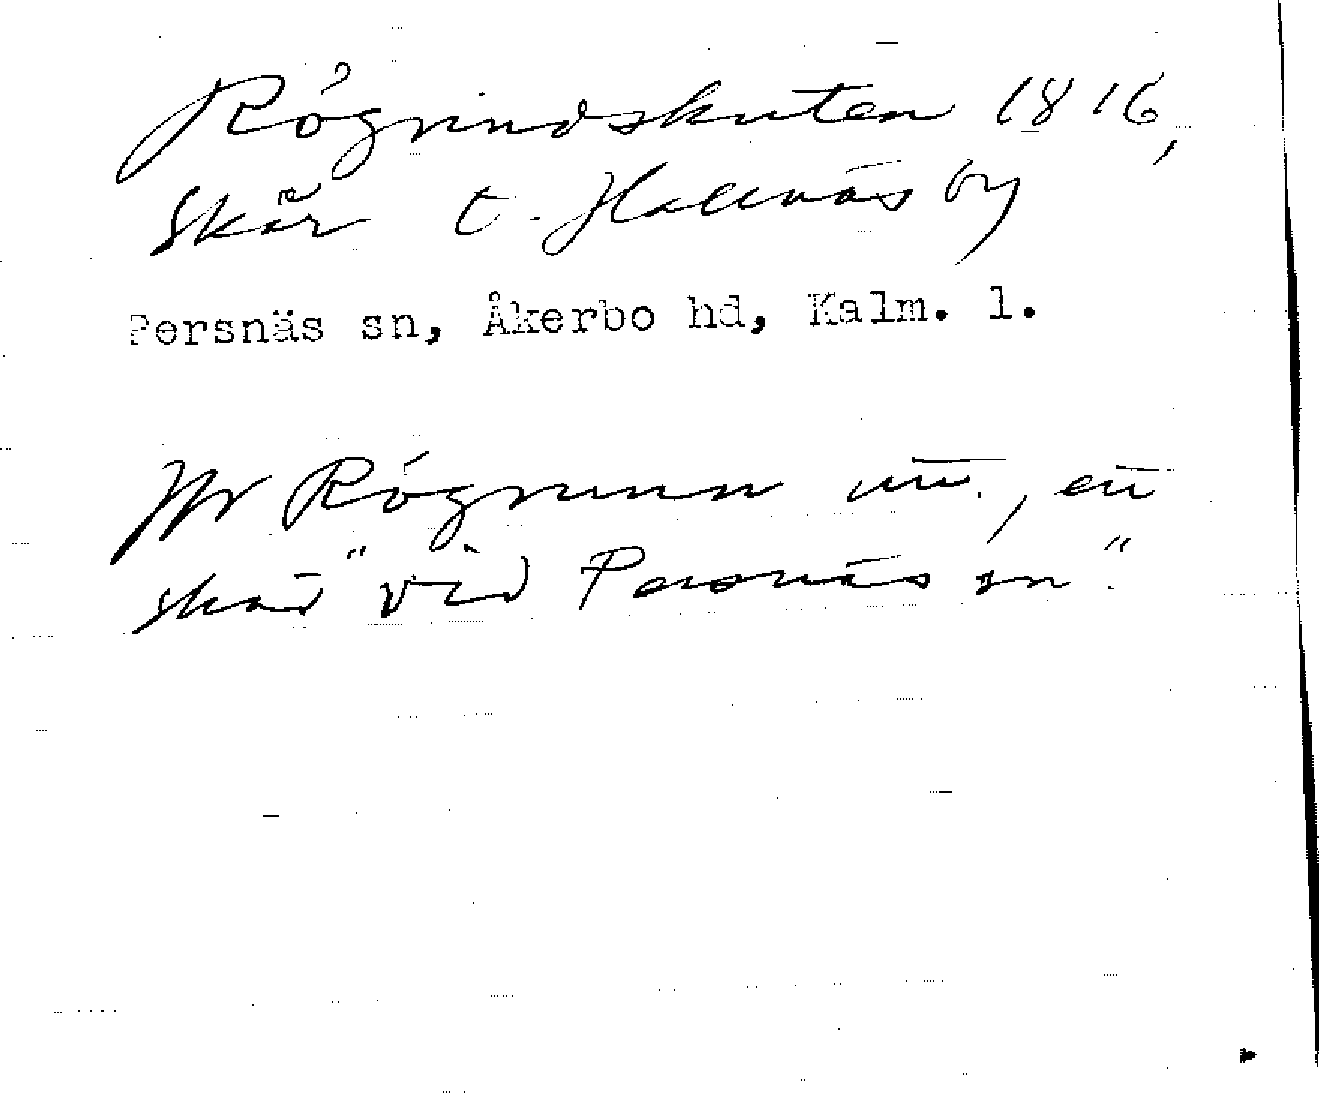 Rågrundskuten 1816,
skär t. Hallnäs by
Persnäs sn, Åkerbo hd, Kalm. l.
Jfr Rågrunn nu., en
skär "vid Persnäs sn".